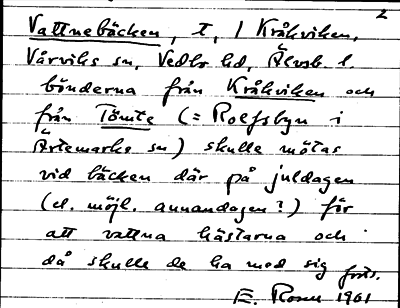 2
Vattnebäcken, t, l Kråkviken,
Vårviks sn, Vedbo hd, Älvsb. l.
bönderna från Kråkviken och
från Tömte (= Rolfsbyn i
Ärtemarks sn) skulle mötas
vid bäcken där på juldagen
(el. möjl. annandagen?) för
att vattna hästarna och
då skulle de ha med sig forts.
E. Rosen 1961